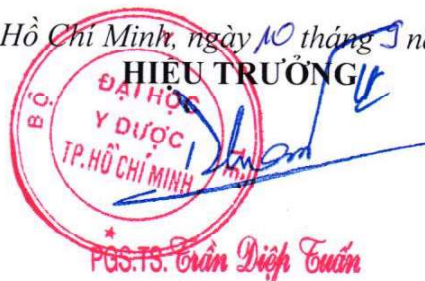 Hồ Chí Minh, ngày 10 tháng 9 nă
HIỆU TRƯỞNG
BỘ
ĐẠI HỌC
Y DƯỢC
TP.HỒ CHÍ MINH
PGS.TS. Trần Diệp Tuấn